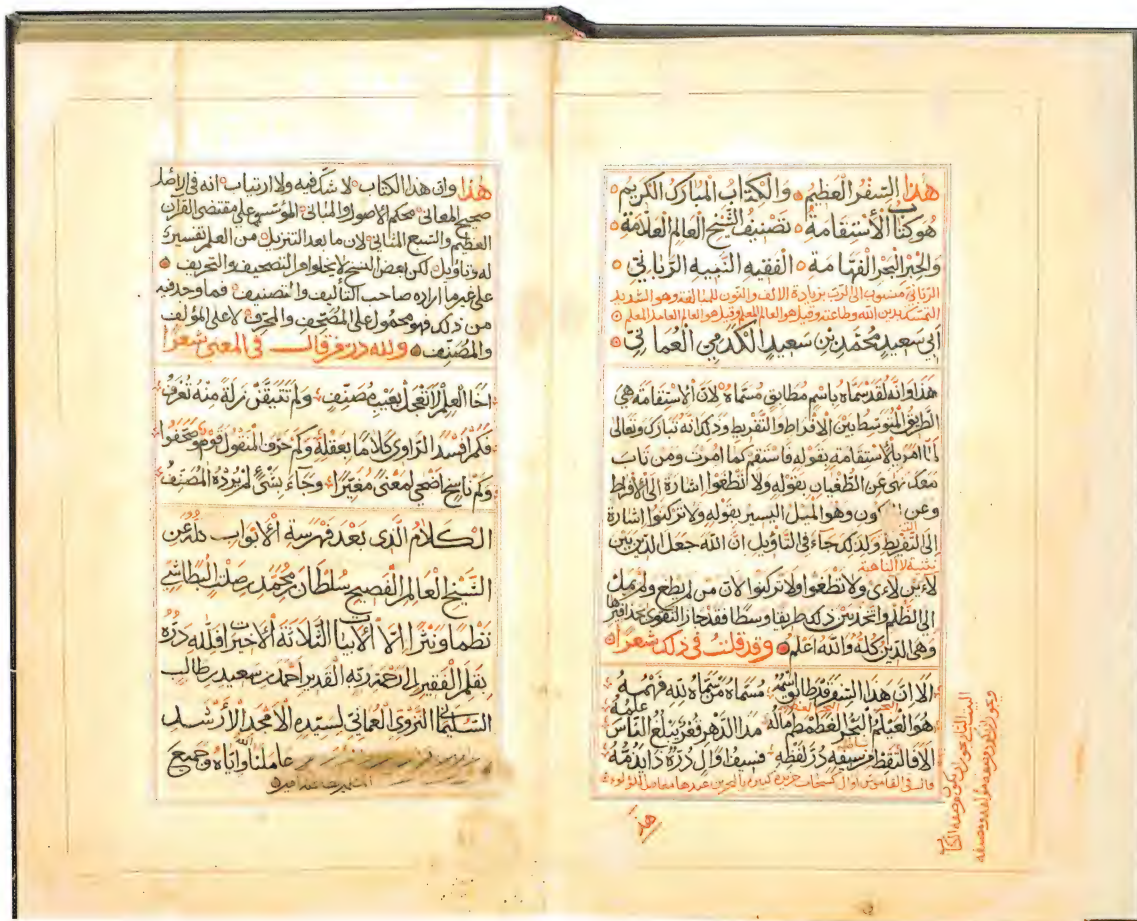 هذا السفر العظيم والكتاب المبارك الكريم
هو كتاب الاستقامة تصنيف الشيخ العالم العلامة
والحبر البحر الفهامة الفقيه النبيه الرباني
الرباني منسوب الى الرب بزيادة الالف والنون للمبالغة وهو الشديد
التمسك بدين الله وطاعته وقيل هو العالم المعلم وقيل هو العالم العامل المعلم
أبي سعيد محمد بن سعيد الكدمي العماني
هذا وانه لقد سماه باسم مطابق مسماه لان الاستقامة هي
الطريق المتوسط بين الافراط والتفريط وذلك انه تبارك وتعالى
لما امر بالاستقامة بقوله فاستقم كما امرت ومن تاب
معك نهى عن الطغيان بقوله ولا تطغوا اشارة الى الافراط
وعن كون وهو الميل اليسير بقوله ولا تركنوا اشارة
إلى التفريط ولذلك جاء في التأويل ان الله جعل الدين بين
تثنية لا الناهية
لاءين لاءى ولا تطغوا ولا تركنوا لان من لم يطغ ولم يمل
الى الظلم واتخذ بين ذلك طريقا وسطا فقد حاز التقوى بحذافيرها
وهي الدين كله والله اعلم وقد قلت في ذلك شعرا
الا ان هذا السفر قد طابق اسمه مسماه من سماه لله فهمه
هو العيلم البحر الغطمطم ماله مدا الدهر فغر يبلغ الناس علمه
الا فالتقط من سيفه در لفظه فسيف اوال دره ذا نذمه
قال في القاموس اوال كسحاب جزيرة كبيرة بالبحرين عندها مغاص اللؤلؤ
هذا
هذا وان هذا الكتاب لا شك فيه ولا ارتياب انه في الاصل
صحيح المعاني محكم الاصول والمباني المؤسس على مقتضى القرآن
العظيم والسبع المثاني لان ما بعد التنزيل من العلم تفسير
له وتاويل لكن بعض النسخ لا يخلوا من التصحيف والتحريف
على غير ما اراده صاحب التأليف والتصنيف فما وجد فيه
من ذلك فهو محمول على المصحف والمحرف لا على المؤلف
والمصنف ولله در من قال في المعنى شعرا
اخا العلم لا تعجل بعيب مصنف ولم تتيقن زلة منه تعرف
فكم افسد الراوي كلاما بعقله وكم حرف المنقول قوم وصحفوا
وكم ناسخ اضحى لمعنى مغيرا وجاء بشئ لم يرده المصنف
الكلام الذى بعد فهرسة الابواب عن
الشيخ العالم الفصيح سلطان بن محمد بن صلت البطاشي
نظما ونثرا الا الابيات الثلاثة الاخيرات فلله دره
بقلم الفقير الى رحمة ربه القدير احمد بن سعيد بن طالب
النزوي العماني لسيده الامجد الارشد
عاملنا الله واياه وجميع